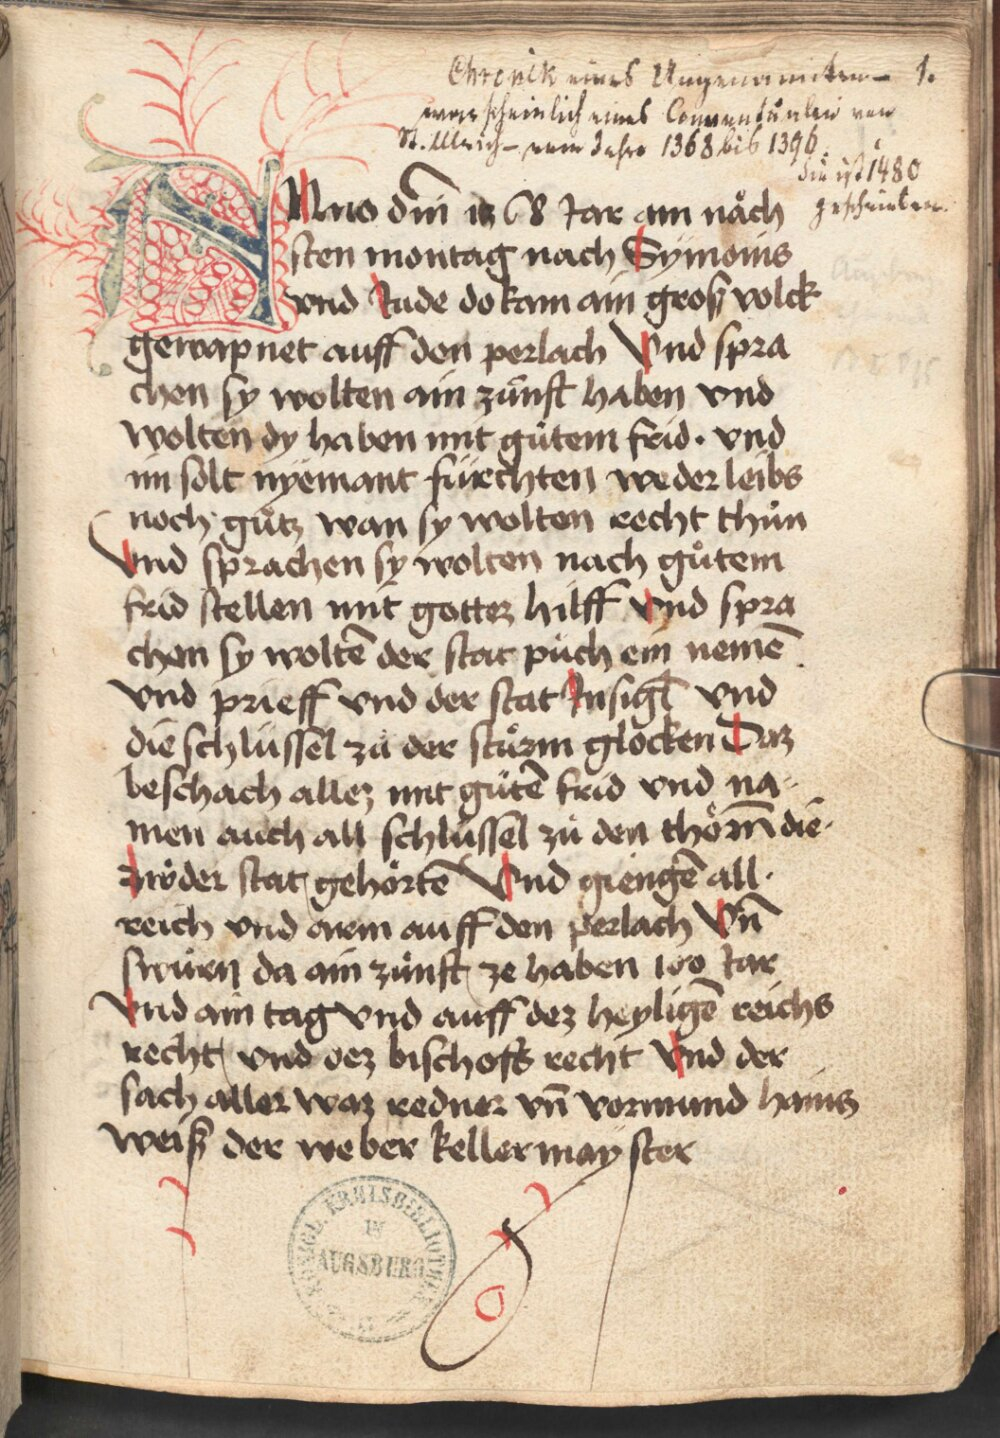 Chronik eines Ungenannten – 1.
warscheinlich eines Conventualen von
St. Ulrich – vom Jahre 1368 bis 1396
die ist 1480
geschrieben.
ANno dm̄ 1368 Jar am nåch
sten montag nach Sÿmonis
vnd Jude do kam ain groß volck
gewapnet auff den perlach Vnd spra
chen sy wolten ain zůnft haben vnd
wolten dy haben mit gůtem frid. vnd
im solt nÿemant fürchten weder leibs
noch gůtz wan sy wolten recht thůn
Vnd sprachen sy wolten nach gůtem
frid stellen mit gottez hilff Vnd spra
chen sy woltē der stat půch ein nemē
vnd prieff vnd der stat Insigl vnd
die schlüssel zů der stůrm glocken Daz
beschach allez mit gůtē frid vnd na-
men auch all schlüssel zů den thörn̄ die
zwo der stat gehörtē Vnd giengē all
reich vnd arm auff den perlach Vn̄
swůrn da ain zůnft ze haben 100 Jar
Vnd ain tag vnd auff dez heyligē reichs
recht vnd dez bischofs recht Vnd der
sach aller waz redner vn̄ vormund hans
weiß der weber kellermayster
KÖNIGL. KREISBIBLIOTHEK
IN
AUGSBURG